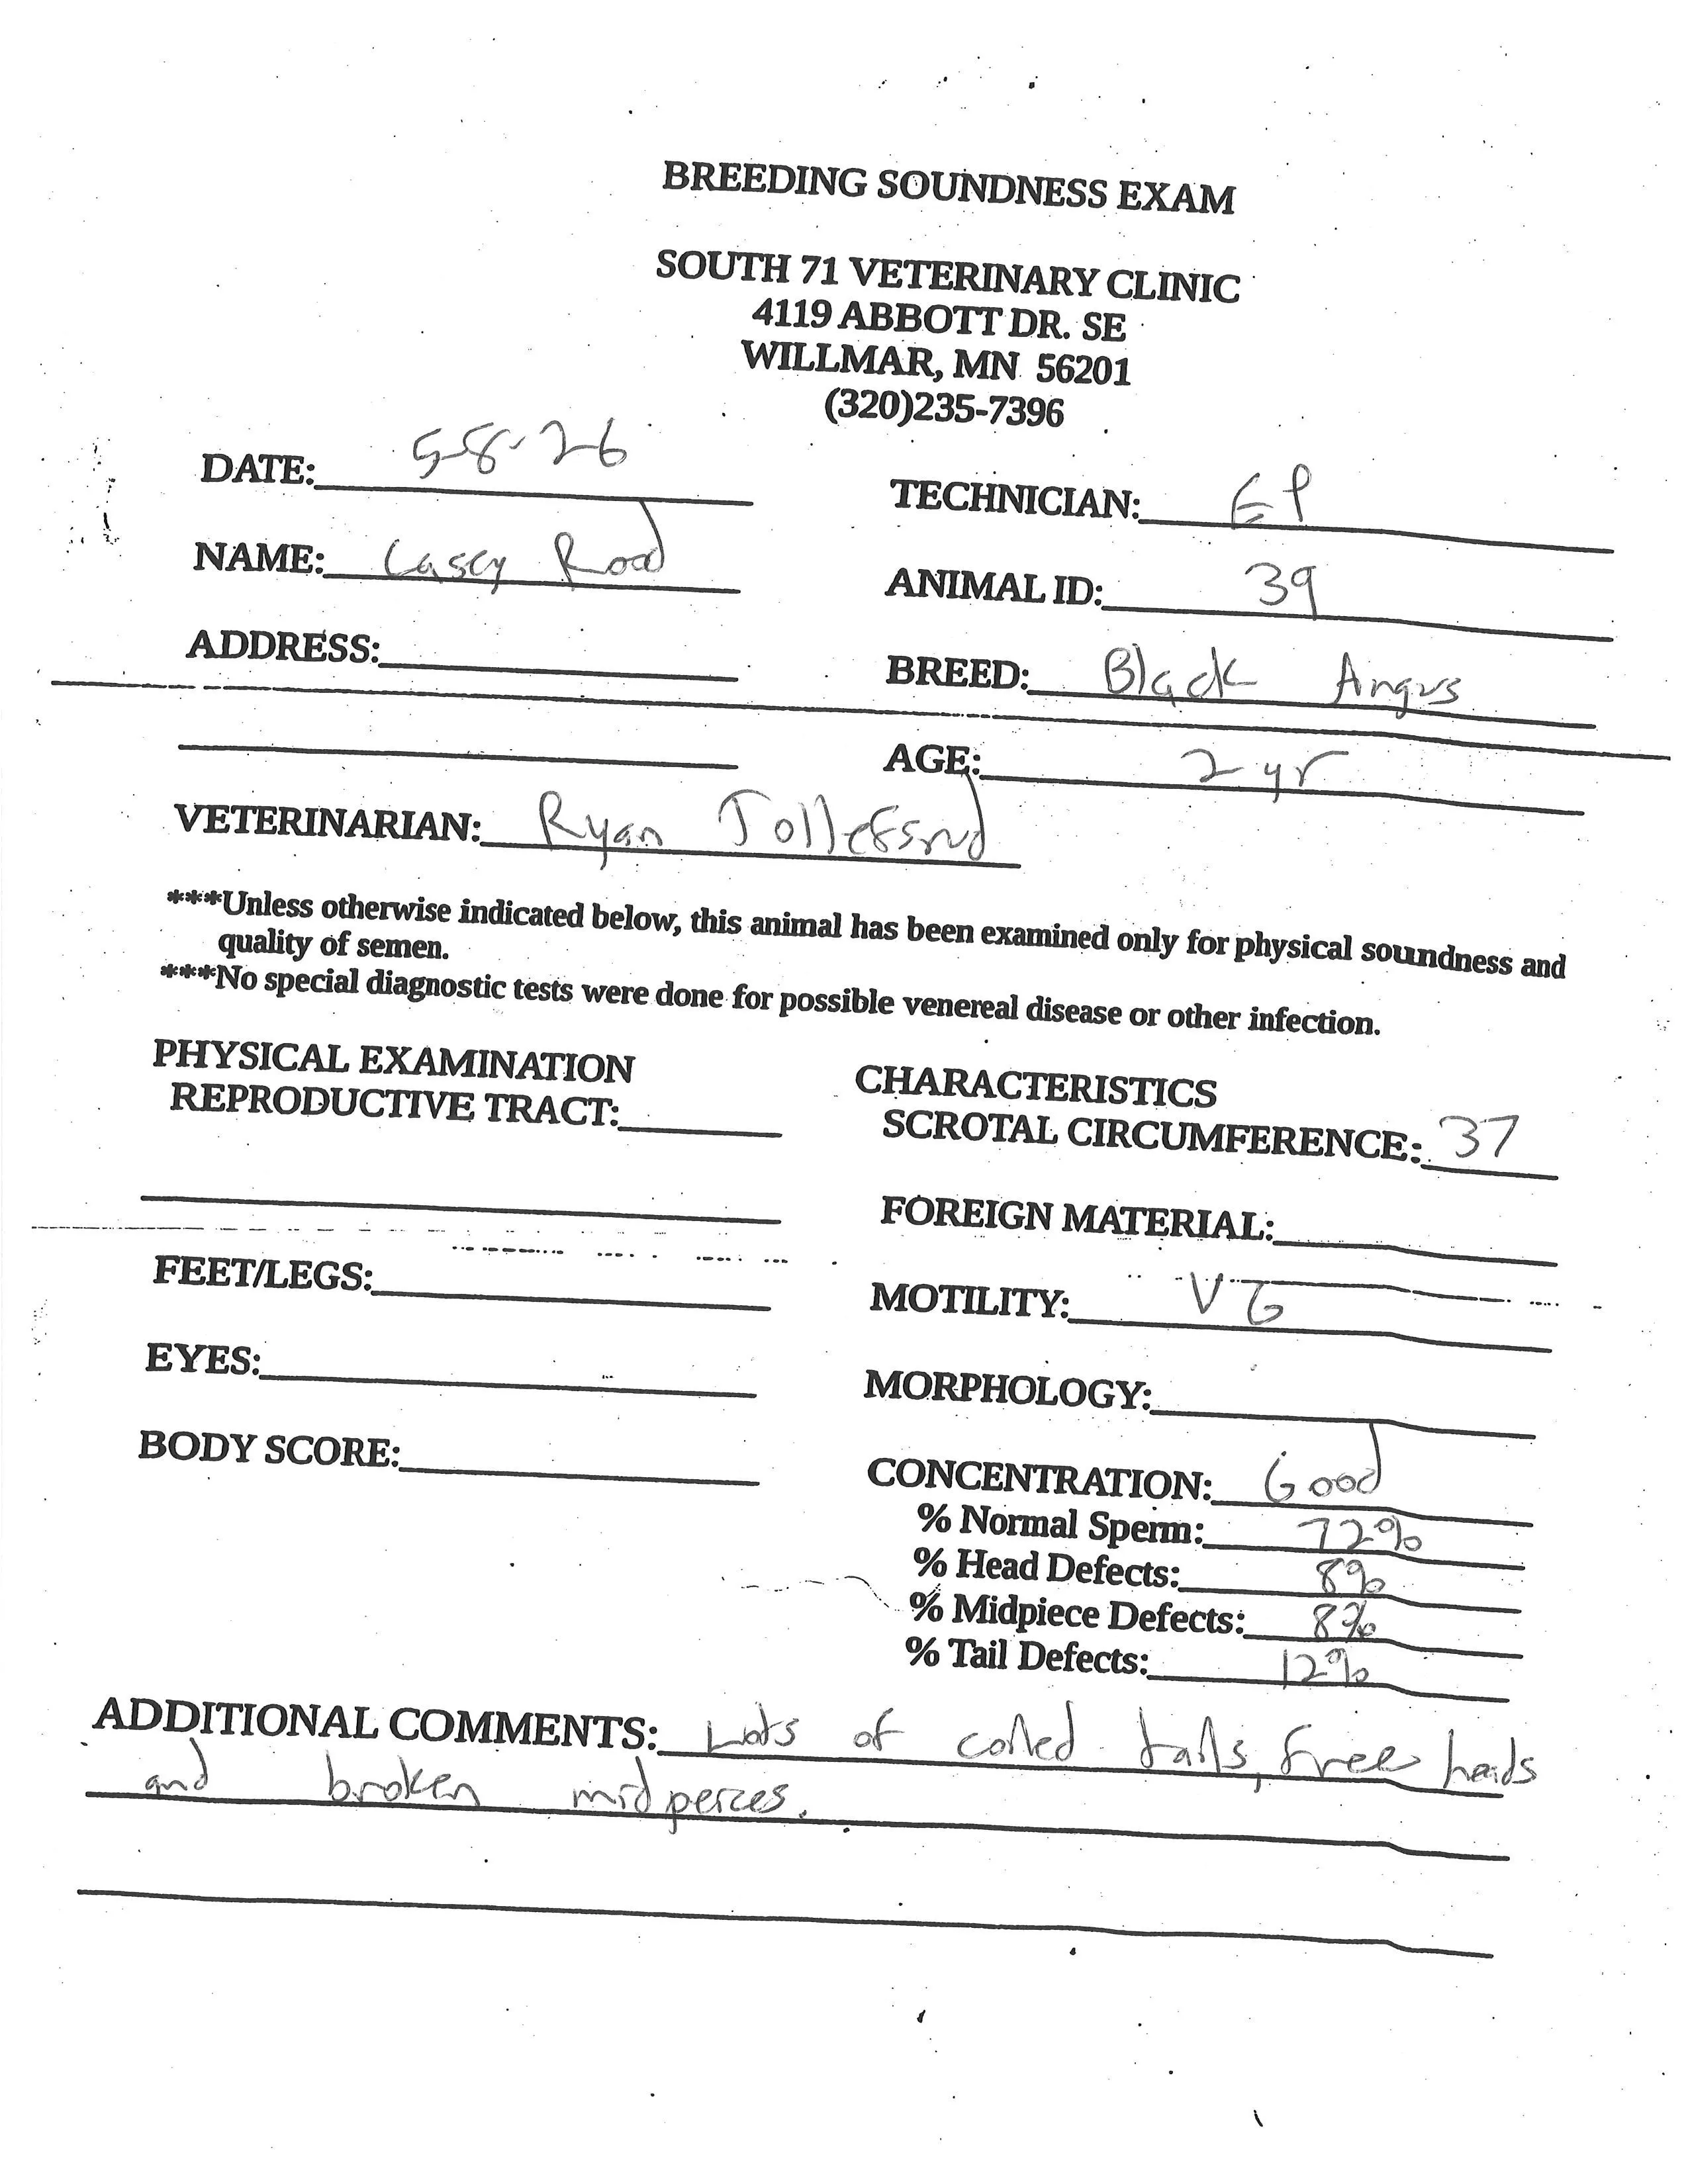 BREEDING SOUNDNESS EXAM
SOUTH 71 VETERINARY CLINIC
4119 ABBOTT DR. SE
WILLMAR, MN 56201
(320)235-7396
DATE: 5-8-26
TECHNICIAN: EP
NAME: Casey Rood
ANIMAL ID: 39
ADDRESS:
BREED: Black Angus
AGE: 2 yr
VETERINARIAN: Ryan Tollefsrud
***Unless otherwise indicated below, this animal has been examined only for physical soundness and
quality of semen.
***No special diagnostic tests were done for possible venereal disease or other infection.
PHYSICAL EXAMINATION
REPRODUCTIVE TRACT:
CHARACTERISTICS
SCROTAL CIRCUMFERENCE: 37
FOREIGN MATERIAL:
FEET/LEGS:
MOTILITY: VG
EYES:
MORPHOLOGY:
BODY SCORE:
CONCENTRATION: Good
% Normal Sperm: 72%
% Head Defects: 8%
% Midpiece Defects: 8%
% Tail Defects: 12%
ADDITIONAL COMMENTS: Lots of coiled tails, free heads
and broken midpeices.